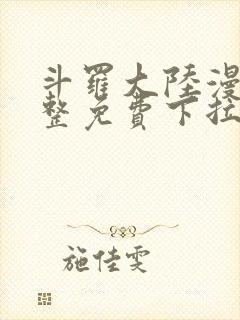 斗羅大陸漫
整免費下拉
施佳雯